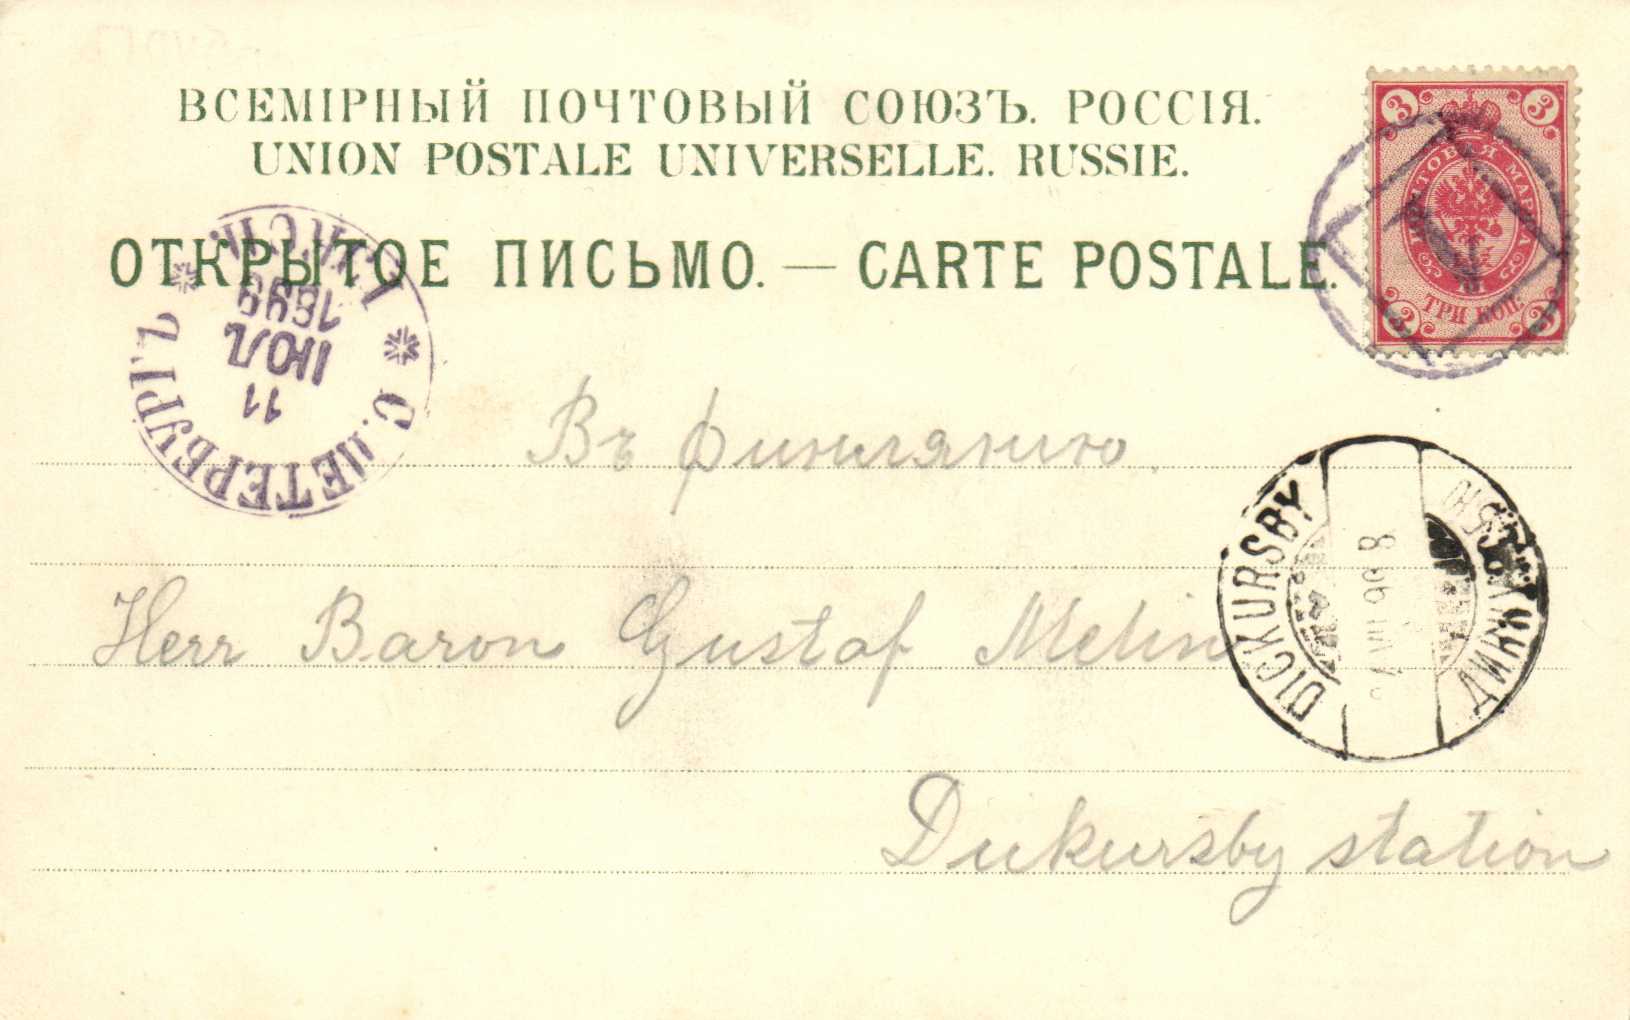 ВСЕМІРНЫЙ ПОЧТОВЫЙ СОЮЗЪ. РОССІЯ.
UNION POSTALE UNIVERSELLE. RUSSIE.
ОТКРЫТОЕ ПИСЬМО. — CARTE POSTALE.
3 3
ПОЧТОВАЯ МАРКА
ТРИ КОП.
3 3
С. ПЕТЕРБУРГЪ
11
ІЮЛ
1899
Въ Финлянію.
DICKURSBY
Herr Baron Gustaf Melin
Dickursby station